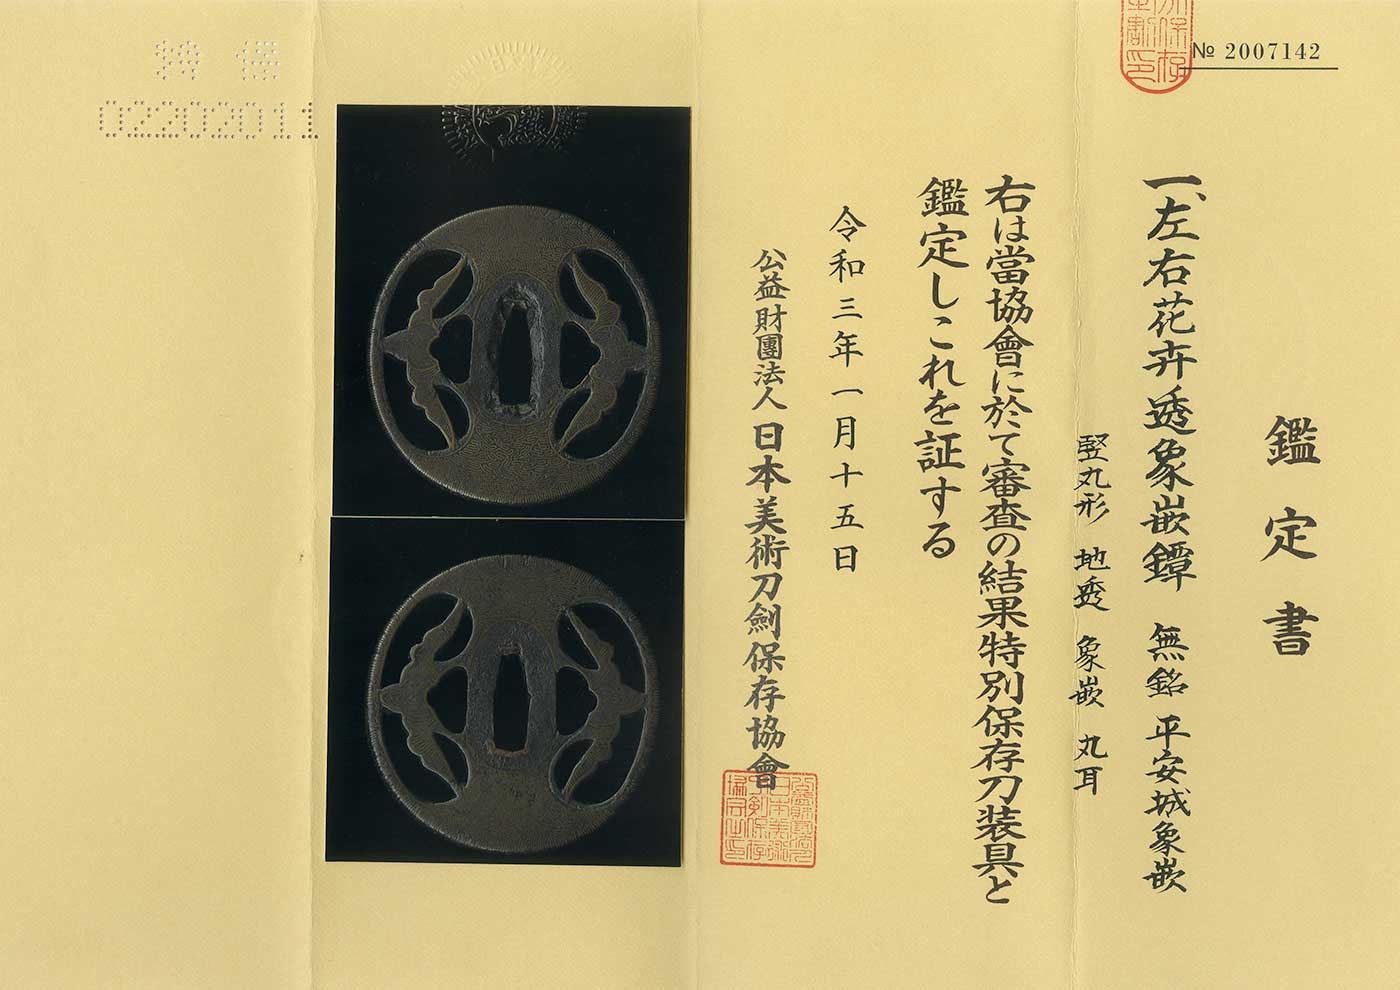 № 2007142
鑑定書
一、左右花卉透象嵌鐔 無銘 平安城象嵌
竪丸形 地透 象嵌 丸耳
右は當協會に於て審査の結果特別保存刀装具と
鑑定しこれを証する
令和三年一月十五日
公益財團法人 日本美術刀劍保存協會
特保
02202011